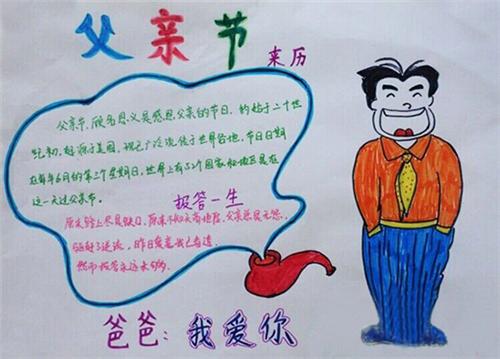 父亲节
来历
父亲节,顾名思义是感恩父亲的节日。约始于二十世
纪初,起源于美国,现已广泛流传于世界各地,节日日期
在每年6月的第三个星期日,世界上有52个国家和地区是在
这一天过父亲节。
报答一生
原来 父亲总是无怨,
永远未够。
爸爸:我爱你